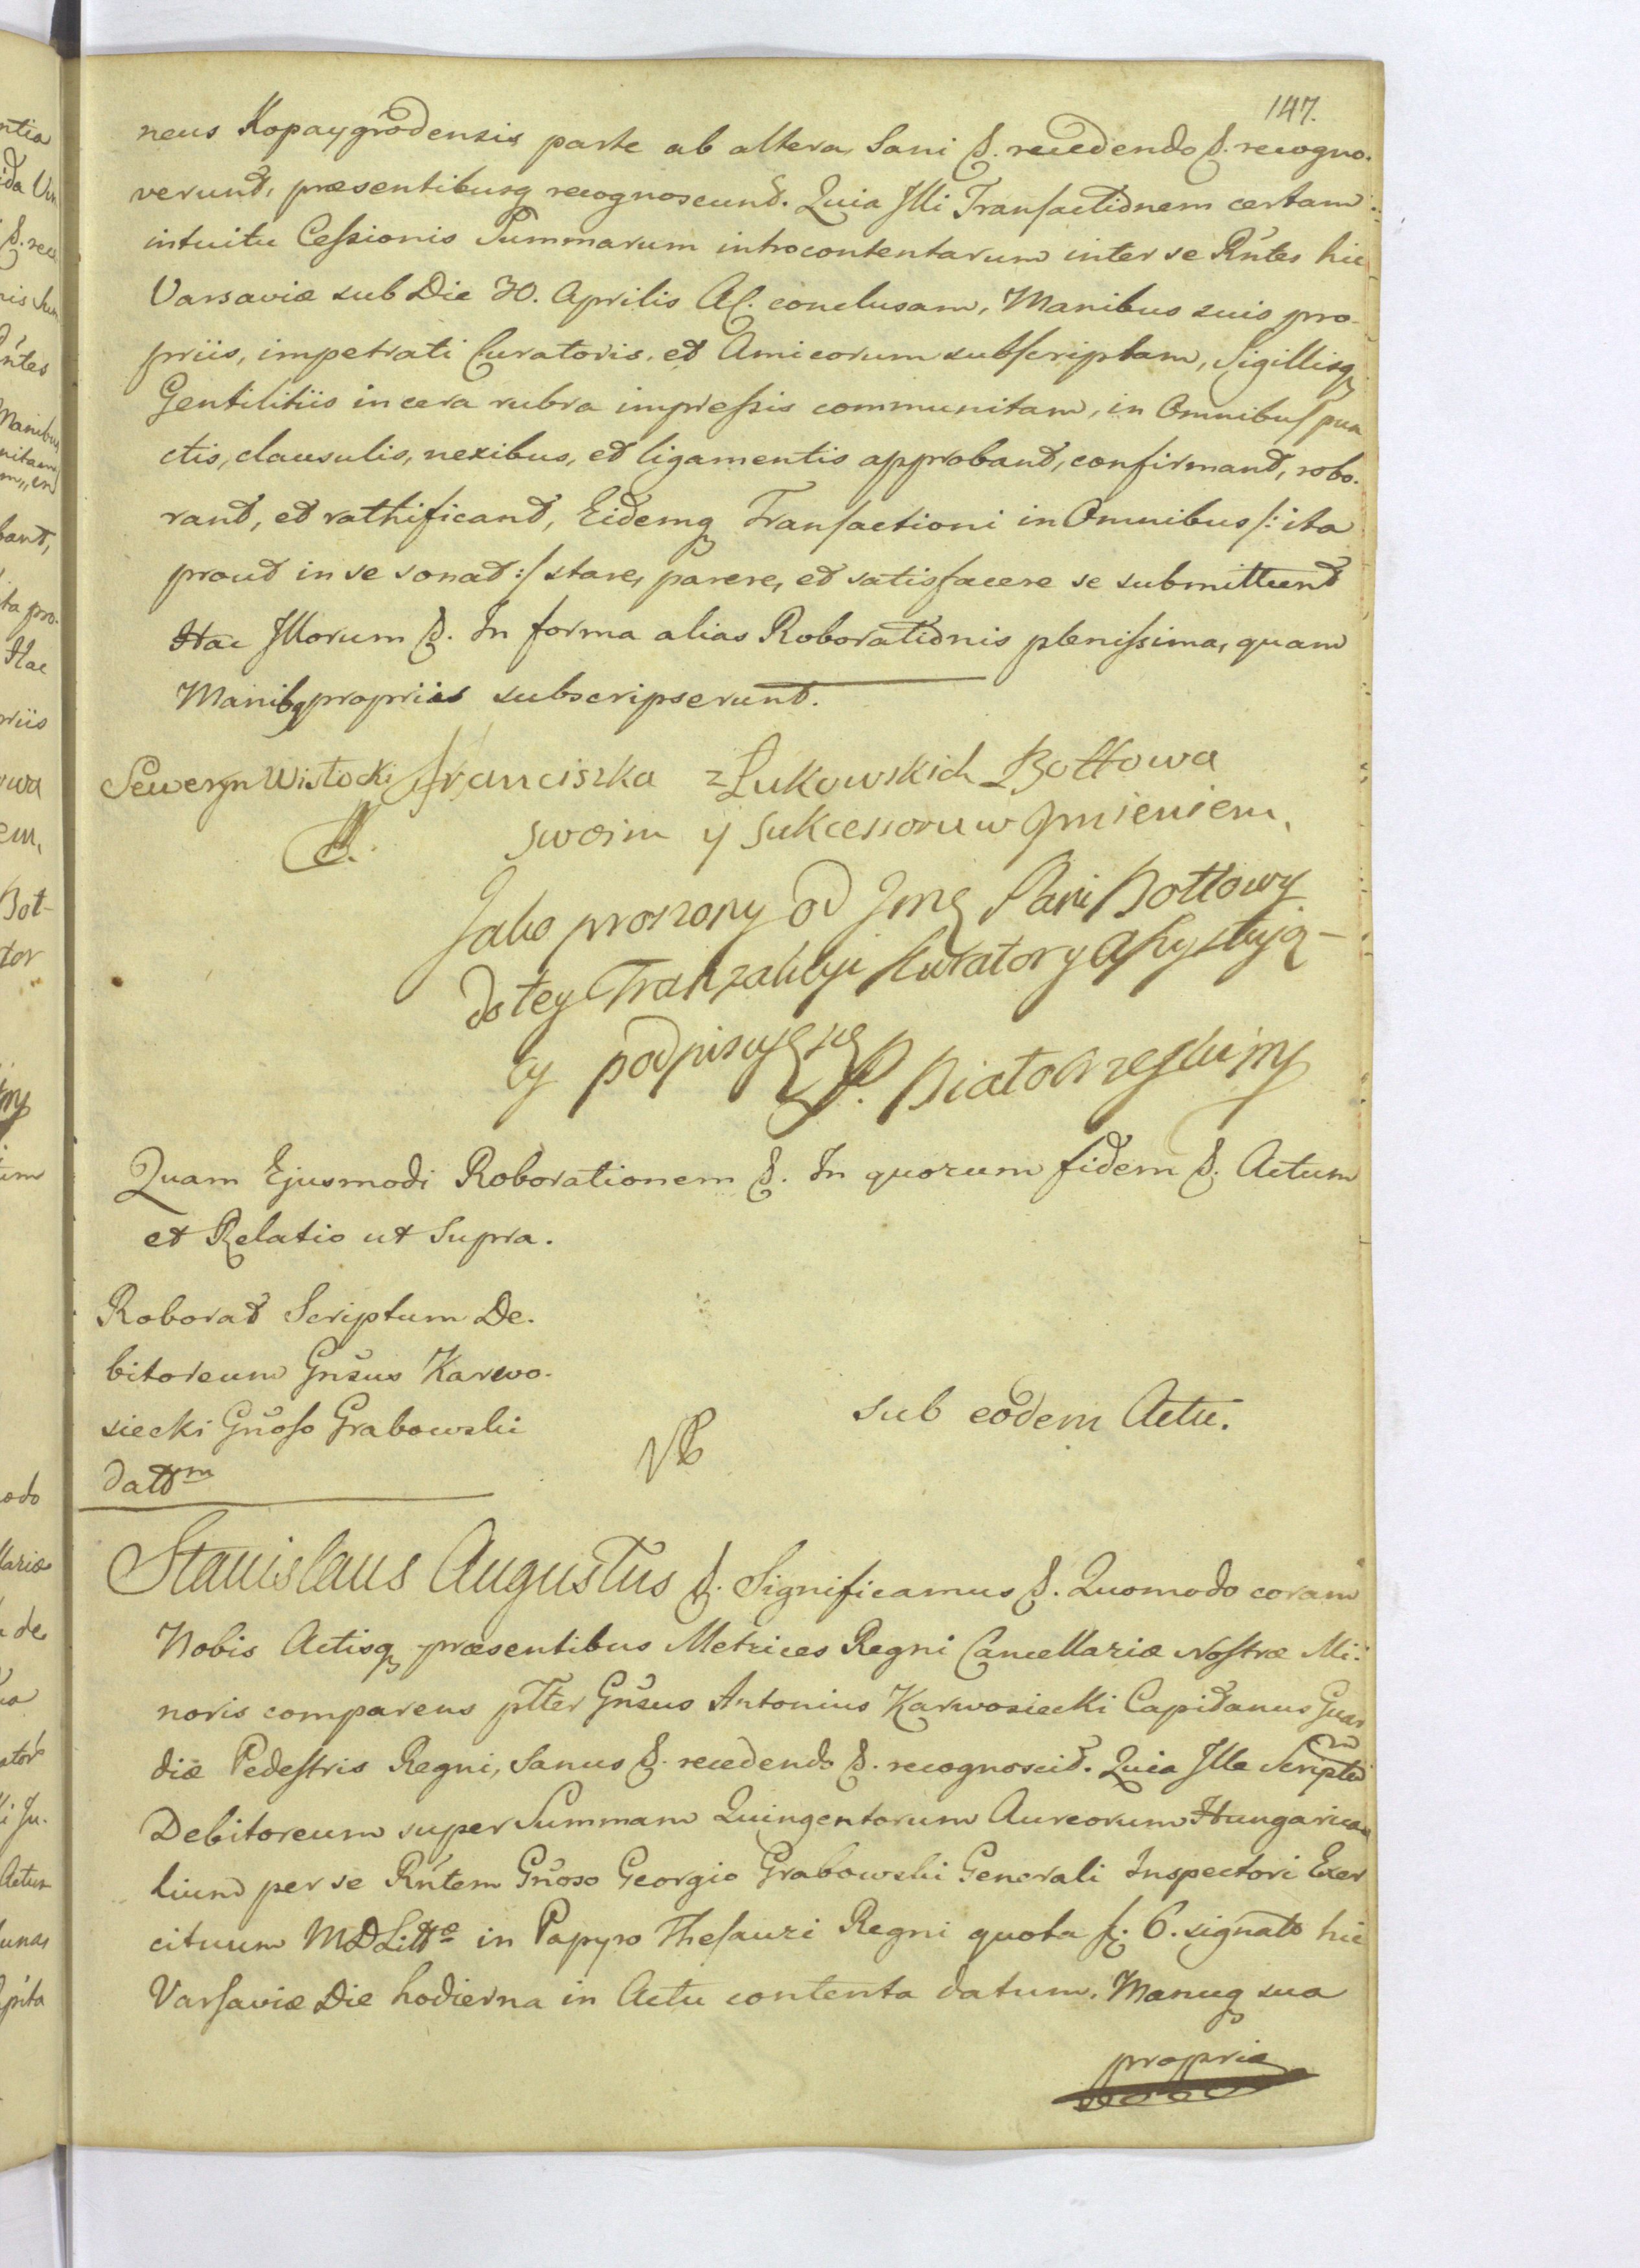 147.
neus Kopaygrodensis parte ab altera Sani &. recedendo &. recogno-
verunt, præsentibusq recognoscunt. Quia Illi Transactionem certam
intuitu Cessionis Summarum introcontentarum inter se Rntes hic
Varsaviæ sub Die 30. Aprilis AC. conclusam, Manibus suis pro-
priis, impetrati Curatoris, et Amicorum subscriptam, Sigillisq
Gentilitiis in cera rubra impressis communitam, in Omnibus pun
ctis, clausulis, nexibus, et ligamentis approbant, confirmant, robo-
rant, et rathificant, Eidemq Transactioni in Omnibus /: ita
prout in se sonat :/ stare, parere, et satisfacere se submittunt
Hac Illorum &. In forma alias Roborationis plenissima, quam
Manibq propriis subscripserunt.
Seweryn Wisłocki Franciszka z Łukowskich Bottowa
swoim y sukcessoruw Jmieniem.
Jako proszony od Jmę Pani Bottowy
do tey Tranzakcyi Kurator y Assystują-
cy podpisuję się P. Białobrzeski mp
Quam Ejusmodi Roborationem &. In quorum fidem &. Actum
et Relatio ut Supra.
Roborat Scriptum De-
bitoreum Gnsus Karwo-
siecki Gnoso Grabowski
datt^m
NB
sub eodem Actu.
Stanislaus Augustus &. Significamus &. Quomodo coram
Nobis Actisq præsentibus Metrices Regni Cancellariæ Nostræ Mi-
noris comparens pltter Gnsus Antonius Karwosiecki Capitanus Guar
diæ Pedestris Regni, Sanus &. recedendo &. recognoscit. Quia Ille Scriptū
Debitoreum super Summam Quingentorum Aureorum Hungarica
lium per se Rntem Gnoso Georgio Grabowski Generali Inspectori Exer
cituum MDLittæ in Papyro Thesauri Regni quota f. 6. signato hic
Varsaviæ Die hodierna in Actu contenta datum. Manuq sua
propria